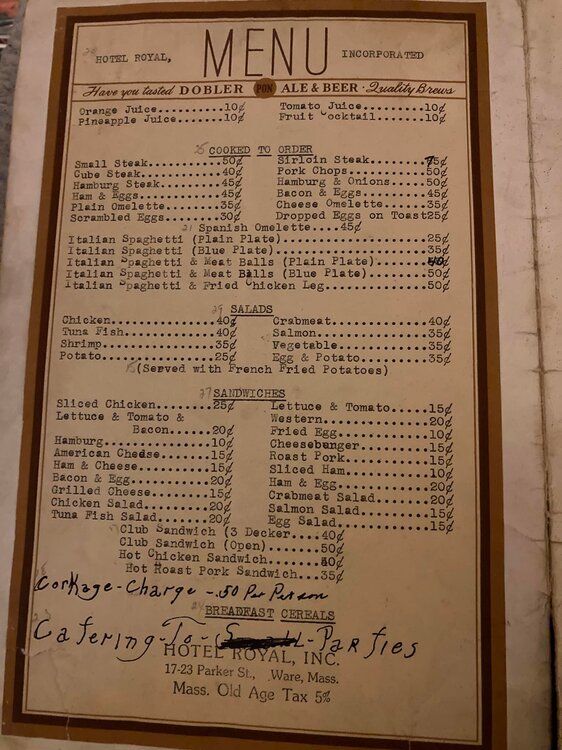 HOTEL ROYAL, MENU INCORPORATED
Have you tasted DOBLER PON ALE & BEER · Quality Brews
Orange Juice..........10¢ Tomato Juice..........10¢
Pineapple Juice.......10¢ Fruit Cocktail........10¢
COOKED TO ORDER
Small Steak...........50¢ Sirloin Steak.........75¢
Cube Steak............40¢ Pork Chops............50¢
Hamburg Steak.........45¢ Hamburg & Onions......50¢
Ham & Eggs............45¢ Bacon & Eggs..........45¢
Plain Omelette........35¢ Cheese Omelette.......35¢
Scrambled Eggs........30¢ Dropped Eggs on Toast25¢
Spanish Omelette....45¢
Italian Spaghetti (Plain Plate)......................25¢
Italian Spaghetti (Blue Plate).......................35¢
Italian Spaghetti & Meat Balls (Plain Plate)........40¢
Italian Spaghetti & Meat Balls (Blue Plate).........50¢
Italian Spaghetti & Fried Chicken Leg................50¢
SALADS
Chicken...............40¢ Crabmeat..............40¢
Tuna Fish.............40¢ Salmon................35¢
Shrimp................35¢ Vegetable.............35¢
Potato................25¢ Egg & Potato..........35¢
(Served with French Fried Potatoes)
SANDWICHES
Sliced Chicken........25¢ Lettuce & Tomato.....15¢
Lettuce & Tomato & Western..............20¢
Bacon.....20¢ Fried Egg............10¢
Hamburg...............10¢ Cheeseburger.........15¢
American Cheese.......15¢ Roast Pork...........15¢
Ham & Cheese..........15¢ Sliced Ham...........10¢
Bacon & Egg...........20¢ Ham & Egg............20¢
Grilled Cheese........15¢ Crabmeat Salad.......20¢
Chicken Salad.........20¢ Salmon Salad.........15¢
Tuna Fish Salad.......20¢ Egg Salad............15¢
Club Sandwich (3 Decker....40¢
Club Sandwich (Open).......50¢
Hot Chicken Sandwich.......40¢
Hot Roast Pork Sandwich...35¢
Corkage-Charge - .50 Per Person
BREAKFAST CEREALS
Catering-To- -Parties
HOTEL ROYAL, INC.
17-23 Parker St., Ware, Mass.
Mass. Old Age Tax 5%